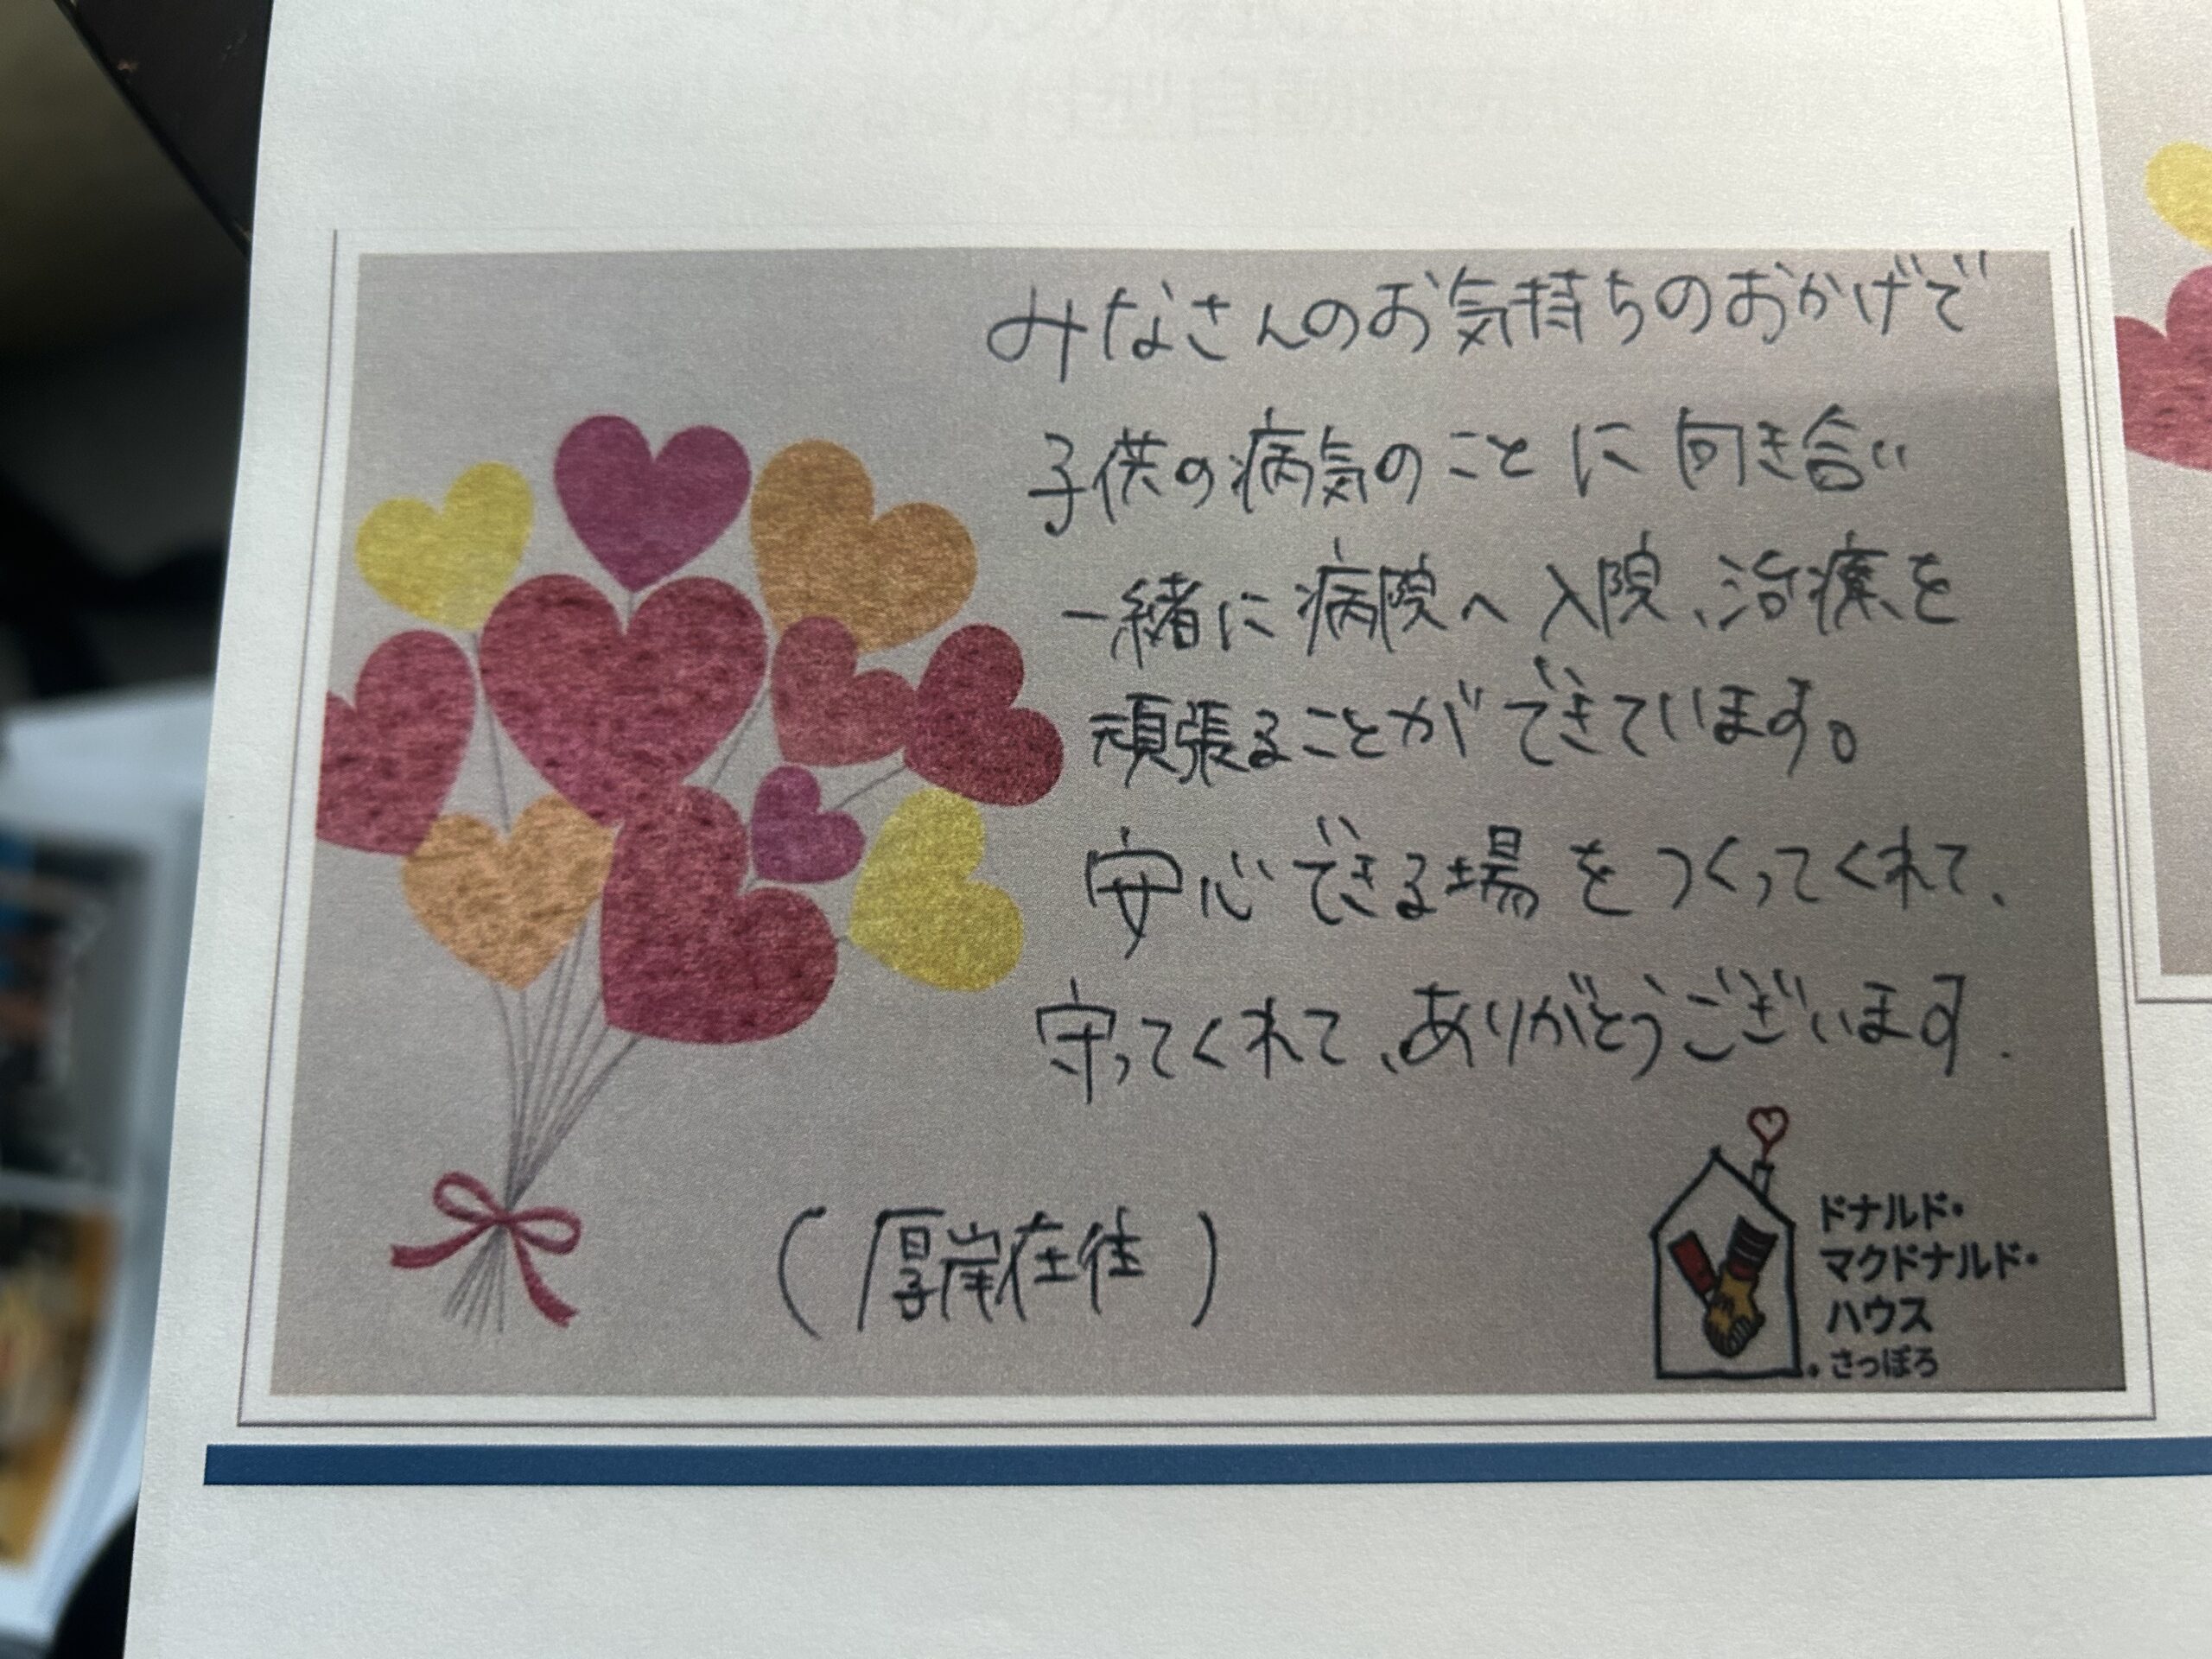 みなさんのお気持ちのおかげで
子供の病気のことに向き合い
一緒に病院へ入院、治療を
頑張ることができています。
安心できる場をつくってくれて、
守ってくれて、ありがとうございます.
(厚岸在住)
ドナルド・
マクドナルド・
ハウス
さっぽろ